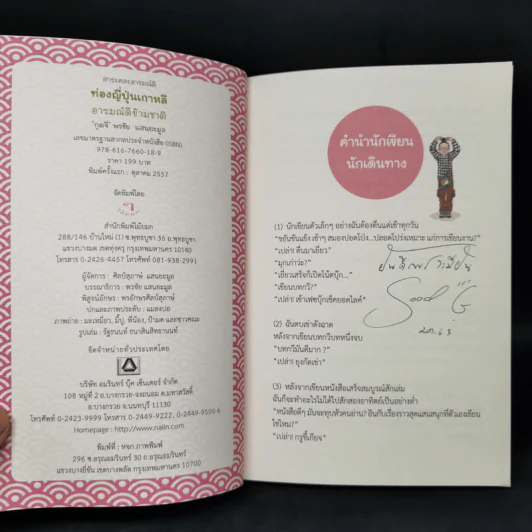 สาระคละอารมณ์ดี
ท่องญี่ปุ่นเกาหลี
อารมณ์ดีข้ามชาติ
"กูดจี" พรชัย แสนยะมูล
เลขมาตรฐานสากลประจำหนังสือ (ISBN)
978-616-7660-18-9
ราคา 199 บาท
พิมพ์ครั้งแรก : ตุลาคม 2557
จัดพิมพ์โดย
สำนักพิมพ์ไม้ยมก
288/146 บ้านใหม่ (1) ซ.พุทธบูชา 36 ถ.พุทธบูชา
แขวงบางมด เขตทุ่งครุ กรุงเทพมหานคร 10140
โทร 0-2426-4457 โทรศัพท์ 081-938-2991
ผู้จัดการ : ศิลป์สุภางค์ แสนยะมูล
บรรณาธิการ : พรชัย แสนยะมูล
พิสูจน์อักษร : พรอักษรศิลป์สุภางค์
ปกและภาพประดับ : แมลงปอ
ภาพถ่าย : มะเหมี่ยว, มี้ปู, พี่น้อง, ป้ามด และชาวคณะ
รูปเล่ม : รัฐธนนท์ ธนาสินสิทธานนท์
จัดจำหน่ายทั่วประเทศโดย
บริษัท อมรินทร์ บุ๊ค เซ็นเตอร์ จำกัด
108 หมู่ที่ 2 ถ.บางกรวย-จงถนอม ต.มหาสวัสดิ์
อ.บางกรวย จ.นนทบุรี 11130
โทรศัพท์ 0-2423-9999 โทรสาร 0-2449-9222, 0-2449-9500-6
Homepage : http://www.naiin.com
พิมพ์ที่ : หจก.ภาพพิมพ์
296 ซ.อรุณอมรินทร์ 30 ถ.อรุณอมรินทร์
แขวงบางยี่ขัน เขตบางพลัด กรุงเทพมหานคร 10700
คำนำนักเขียน
นักเดินทาง
(1) นักเขียนตัวเล็กๆ อย่างฉันต้องตื่นแต่เช้าทุกวัน
"ขยันขันแข็ง เช้าๆ สมองปลอดโปร่ง...ปลอดโปร่งเหมาะ แก่การเขียนงาน?"
"เปล่า! ตื่นมาเยี่ยว"
"มุกเก่าว่ะ?"
"เยี่ยวเสร็จก็เปิดโน้ตบุ๊ก..."
"เขียนบทกวี?"
"เปล่า! เข้าเฟซบุ๊กเช็คยอดไลค์"
Good G
(2) ฉันตบเข่าดังฉาด
หลังจากเขียนบทกวีบทหนึ่งจบ
"บทกวีมันดีมาก ?"
"เปล่า! ยุงกัดเข่า"
(3) หลังจากเขียนหนังสือเสร็จสมบูรณ์สักเล่ม
ฉันก็จะทำอะไรไม่ได้ไปสักสองอาทิตย์เป็นอย่างต่ำ
"หนังสือดีๆ มันจะทุบหัวคนอ่าน? อินกับเรื่องราวสุดแสนสนุกที่ตัวเองเขียน
ใช่ไหม?"
"เปล่า! กูขี้เกียจ"